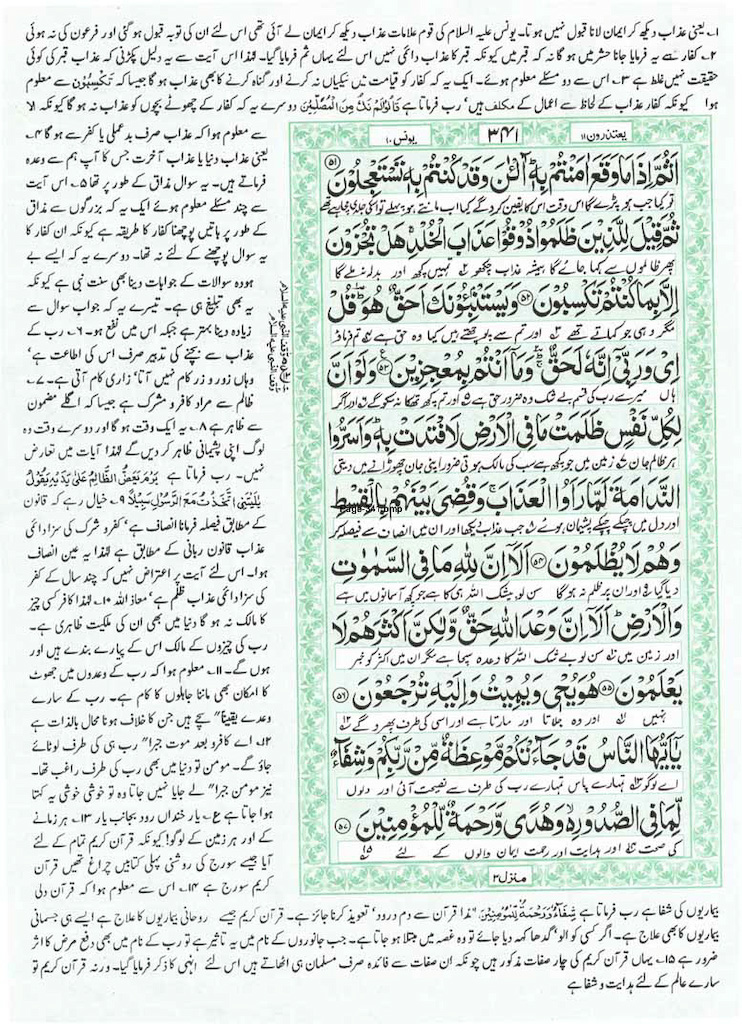 ۱۔ یعنی عذاب دیکھ کر ایمان لانا قبول نہیں ہوتا۔ یونس علیہ السلام کی قوم علامات عذاب دیکھ کر ایمان لے آئی تھی اس لئے ان کی توبہ قبول ہو گئی اور فرعون کی نہ ہوئی
۲۔ کفار سے یہ فرمایا جانا حشر میں ہو گا نہ کہ قبر میں کیونکہ قبر کا عذاب دائمی نہیں اس لئے یہاں ثم فرمایا گیا۔ لہٰذا اس آیت سے یہ دلیل پکڑنی کہ عذاب قبر کی کوئی
حقیقت نہیں غلط ہے ۳۔ اس سے دو مسئلے معلوم ہوئے۔ ایک یہ کہ کفار کو قیامت میں نیکیاں نہ کرنے اور گناہ کرنے کا بھی عذاب ہو گا جیسا کہ تَکْسِبُوْنَ سے معلوم
ہوا کیونکہ کفار عذاب کے لحاظ سے اعمال کے مکلف ہیں' رب فرماتا ہے قَالُوْا لَمْ نَکُ مِنَ الْمُصَلِّیْنَ دوسرے یہ کہ کفار کے چھوٹے بچوں کو عذاب نہ ہو گا کیونکہ اِلَّا
سے معلوم ہوا کہ عذاب صرف بدعملی یا کفر سے ہو گا ۴۔
یعنی عذاب دنیا یا عذاب آخرت جس کا آپ ہم سے وعدہ
فرماتے ہیں۔ یہ سوال مذاق کے طور پر تھا ۵۔ اس آیت
سے چند مسئلے معلوم ہوئے ایک یہ کہ بزرگوں سے مذاق
کے طور پر باتیں پوچھنا کفار کا طریقہ ہے کیونکہ ان کفار کا
یہ سوال پوچھنے کے لئے نہ تھا۔ دوسرے یہ کہ ایسے بے
ہودہ سوالات کے جوابات دینا بھی سنت نبی ہے کیونکہ
یہ بھی تبلیغ ہی ہے۔ تیسرے یہ کہ جواب سوال سے
زیادہ دینا بہتر ہے جبکہ اس میں نفع ہو۔ ۶۔ رب کے
عذاب سے بچنے کی تدبیر صرف اس کی اطاعت ہے'
وہاں زور و زر کام نہیں آتا' زاری کام آتی ہے۔ ۷۔
ظالم سے مراد کافر و مشرک ہے جیسا کہ اگلے مضمون
سے ظاہر ہے ۸۔ یہ ایک وقت ہو گا اور دوسرے وقت وہ
لوگ اپنی پشیمانی ظاہر کر دیں گے لہٰذا آیات میں تعارض
نہیں۔ رب فرماتا ہے یَوْمَ یَعَضُّ الظَّالِمُ عَلٰی یَدَیْہِ یَقُوْلُ
یٰلَیْتَنِی اتَّخَذْتُ مَعَ الرَّسُوْلِ سَبِیْلًا ۹۔ خیال رہے کہ قانون
کے مطابق فیصلہ فرمانا انصاف ہے' کفر و شرک کی سزا دائمی
عذاب قانون ربانی کے مطابق ہے لہٰذا یہ عین انصاف
ہوا۔ اس لئے آیت پر اعتراض نہیں کہ چند سال کے کفر
کی سزا دائمی عذاب ظلم ہے' معاذ اللہ ۱۰۔ لہٰذا کافر کسی چیز
کا مالک نہ ہو گا دنیا میں بھی ان کی ملکیت ظاہری ہے۔
رب کی چیزوں کے مالک اس کے پیارے بندے ہیں اور
ہوں گے۔ ۱۱۔ معلوم ہوا کہ رب کے وعدوں میں جھوٹ
کا امکان بھی ماننا جاہلوں کا کام ہے۔ رب کے سارے
وعدے یقیناً سچے ہیں جن کا خلاف ہونا محال بالذات ہے
۱۲۔ اے کافرو بعد موت جبراً رب ہی کی طرف لوٹائے
جاؤ گے۔ مومن تو دنیا میں بھی رب کی طرف راغب تھا۔
نیز مومن جبراً لے جایا نہیں جاتا وہ تو خوشی خوشی یہ کہتا
ہوا جاتا ہے ع۔ یار خنداں رود بجانب یار ۱۳۔ ہر زمانے
کے اور ہر زمین کے لوگو! کیونکہ قرآن کریم تمام کے لئے
آیا جیسے سورج کی روشنی پہلی کتابیں چراغ تھیں قرآن
کریم سورج ہے ۱۴۔ اس سے معلوم ہوا کہ قرآن دلی
یعتذرون ۱۱
۳۴۱
یونس ۱۰
اَثُمَّ اِذَا مَا وَقَعَ اٰمَنْتُمْ بِهٖ ؕ آٰلْـٰٔنَ وَقَدْ كُنْتُمْ بِهٖ تَسْتَعْجِلُوْنَ ﴿۵۱﴾
ثُمَّ قِيْلَ لِلَّذِيْنَ ظَلَمُوْا ذُوْقُوْا عَذَابَ الْخُلْدِ ۚ هَلْ تُجْزَوْنَ
پھر ظالموں سے کہا جائے گا ہمیشہ عذاب چکھو تمہیں کچھ اور بدلہ نہ ملے گا
اِلَّا بِمَا كُنْتُمْ تَكْسِبُوْنَ ﴿۵۲﴾ وَيَسْتَنْۢبِـُٔوْنَكَ اَحَقٌّ هُوَ ؕ قُلْ
مگر وہی جو کماتے تھے اور تم سے پوچھتے ہیں کیا وہ حق ہے تم فرماؤ
اِيْ وَرَبِّيْۤ اِنَّهٗ لَحَقٌّ ؕ وَمَاۤ اَنْتُمْ بِمُعْجِزِيْنَ ﴿۵۳﴾ وَلَوْ اَنَّ
ہاں میرے رب کی قسم بے شک وہ ضرور حق ہے اور تم کچھ تھکا نہ سکو گے اور اگر
لِكُلِّ نَفْسٍ ظَلَمَتْ مَا فِي الْاَرْضِ لَافْتَدَتْ بِهٖ ؕ وَاَسَرُّوا
ہر ظالم جان زمین میں جو کچھ ہے سب کی مالک ہوتی ضرور اپنی جان چھوڑانے میں دیتی
النَّدَامَةَ لَمَّا رَاَوُا الْعَذَابَ ۚ وَقُضِيَ بَيْنَهُمْ بِالْقِسْطِ
Page-341.bmp
اور دل میں چپکے چپکے پشیمان ہوئے جب عذاب دیکھا اور ان میں انصاف سے فیصلہ کر
وَهُمْ لَا يُظْلَمُوْنَ ﴿۵۴﴾ اَلَاۤ اِنَّ لِلّٰهِ مَا فِي السَّمٰوٰتِ
دیا گیا اور ان پر ظلم نہ ہو گا سن لو بیشک اللہ ہی کا ہے جو کچھ آسمانوں میں ہے
وَالْاَرْضِ ؕ اَلَاۤ اِنَّ وَعْدَ اللّٰهِ حَقٌّ وَّلٰكِنَّ اَكْثَرَهُمْ لَا
اور زمین میں سن لو بے شک اللہ کا وعدہ سچا ہے مگر ان میں اکثر کو خبر
يَعْلَمُوْنَ ﴿۵۵﴾ هُوَ يُحْيٖ وَيُمِيْتُ وَاِلَيْهِ تُرْجَعُوْنَ ﴿۵۶﴾
نہیں اور وہ جلاتا اور مارتا ہے اور اسی کی طرف پھرو گے
يٰۤاَيُّهَا النَّاسُ قَدْ جَآءَتْكُمْ مَّوْعِظَةٌ مِّنْ رَّبِّكُمْ وَشِفَآءٌ
اے لوگو تمہارے پاس تمہارے رب کی طرف سے نصیحت آئی اور دلوں
لِّمَا فِي الصُّدُوْرِ ۙ وَهُدًى وَّرَحْمَةٌ لِّلْمُؤْمِنِيْنَ ﴿۵۷﴾
کی صحت اور ہدایت اور رحمت ایمان والوں کے لئے
منزل ۳
بیماریوں کی شفا ہے رب فرماتا ہے شِفَآءٌ وَّرَحْمَۃٌ لِّلْمُؤْمِنِیْنَ لہٰذا قرآن سے دم درود' تعویذ کرنا جائز ہے۔ قرآن کریم جیسے روحانی بیماریوں کا علاج ہے ایسے ہی جسمانی
بیماریوں کا بھی علاج ہے۔ اگر کسی کو الو' گدھا کہہ دیا جائے تو وہ غصہ میں مبتلا ہو جاتا ہے۔ جب جانوروں کے نام میں یہ تاثیر ہے تو رب کے نام میں بھی دفع مرض کا اثر
ضرور ہے ۱۵۔ یہاں قرآن کریم کی چار صفات مذکور ہیں چونکہ ان صفات سے فائدہ صرف مسلمان ہی اٹھاتے ہیں اس لئے انہی کا ذکر فرمایا گیا۔ ورنہ قرآن کریم تو
سارے عالم کے لئے ہدایت و شفا ہے